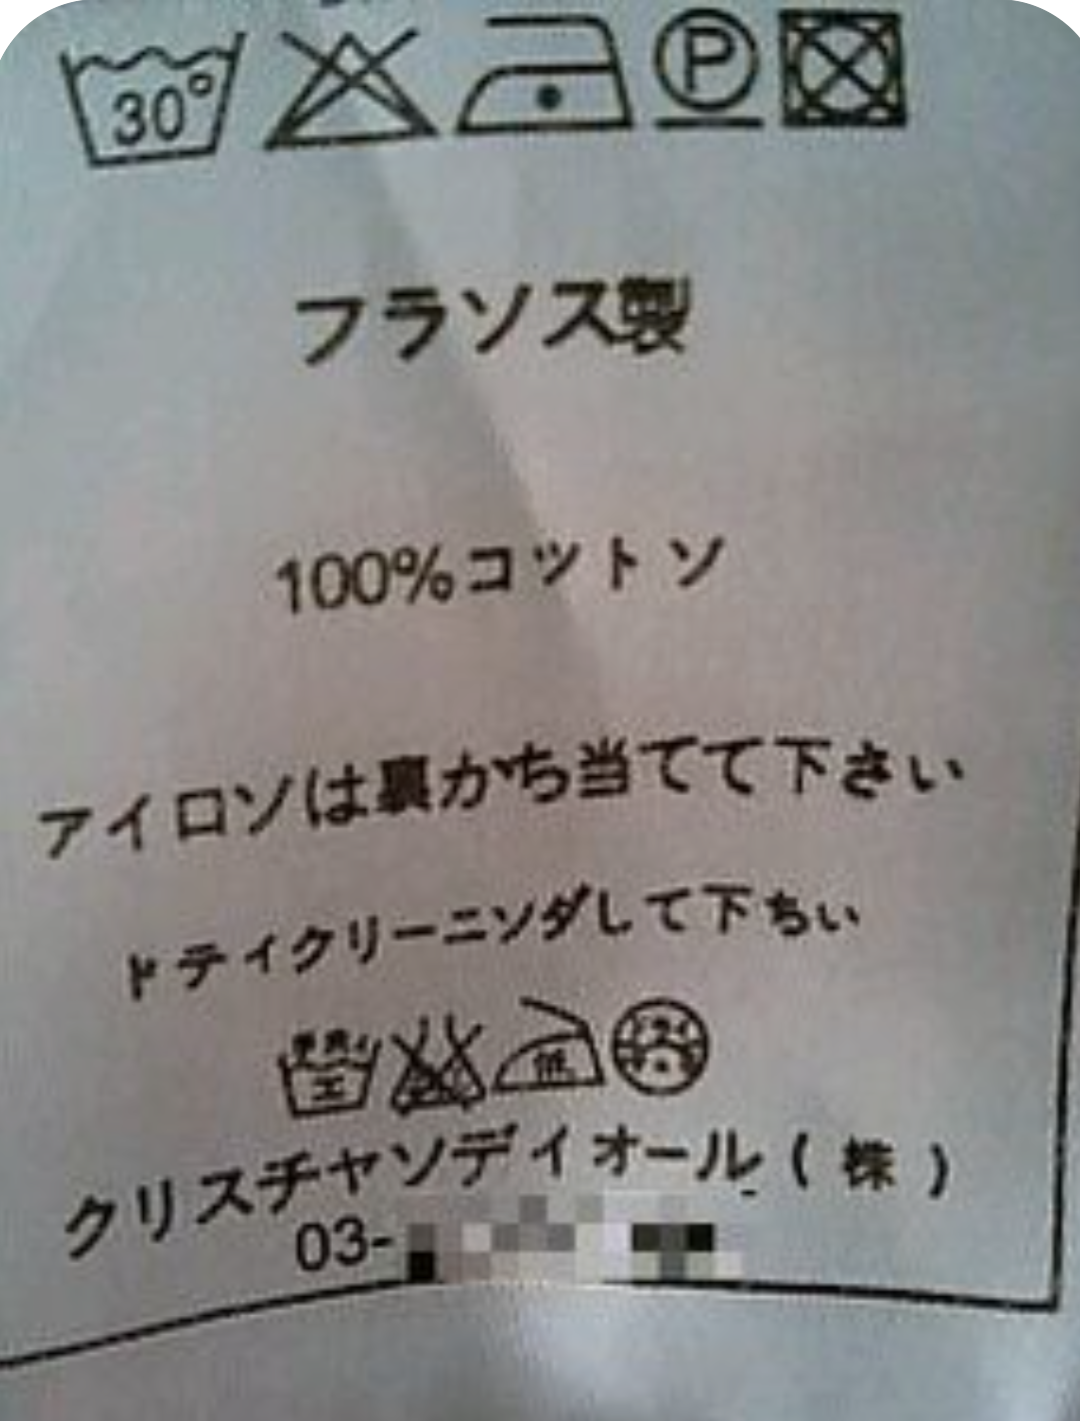 30°
P
フラソス製
100%コットソ
アイロソは裏かち当てて下さい
ドティクリーニソダして下ちい
エ 低 ドライ
クリスチャソディオール(株)
03-